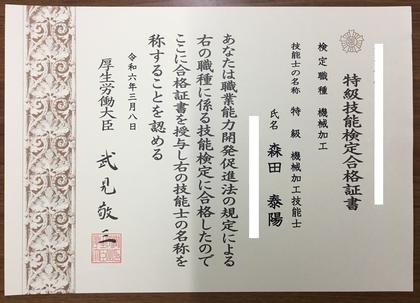 特級技能検定合格証書
検定職種 機械加工
技能士の名称 特級 機械加工技能士
氏名 森田 泰陽
あなたは職業能力開発促進法の規定による
右の職種に係る技能検定に合格したので
ここに合格証書を授与し右の技能士の名称を
称することを認める
令和六年三月八日
厚生労働大臣 武見敬三